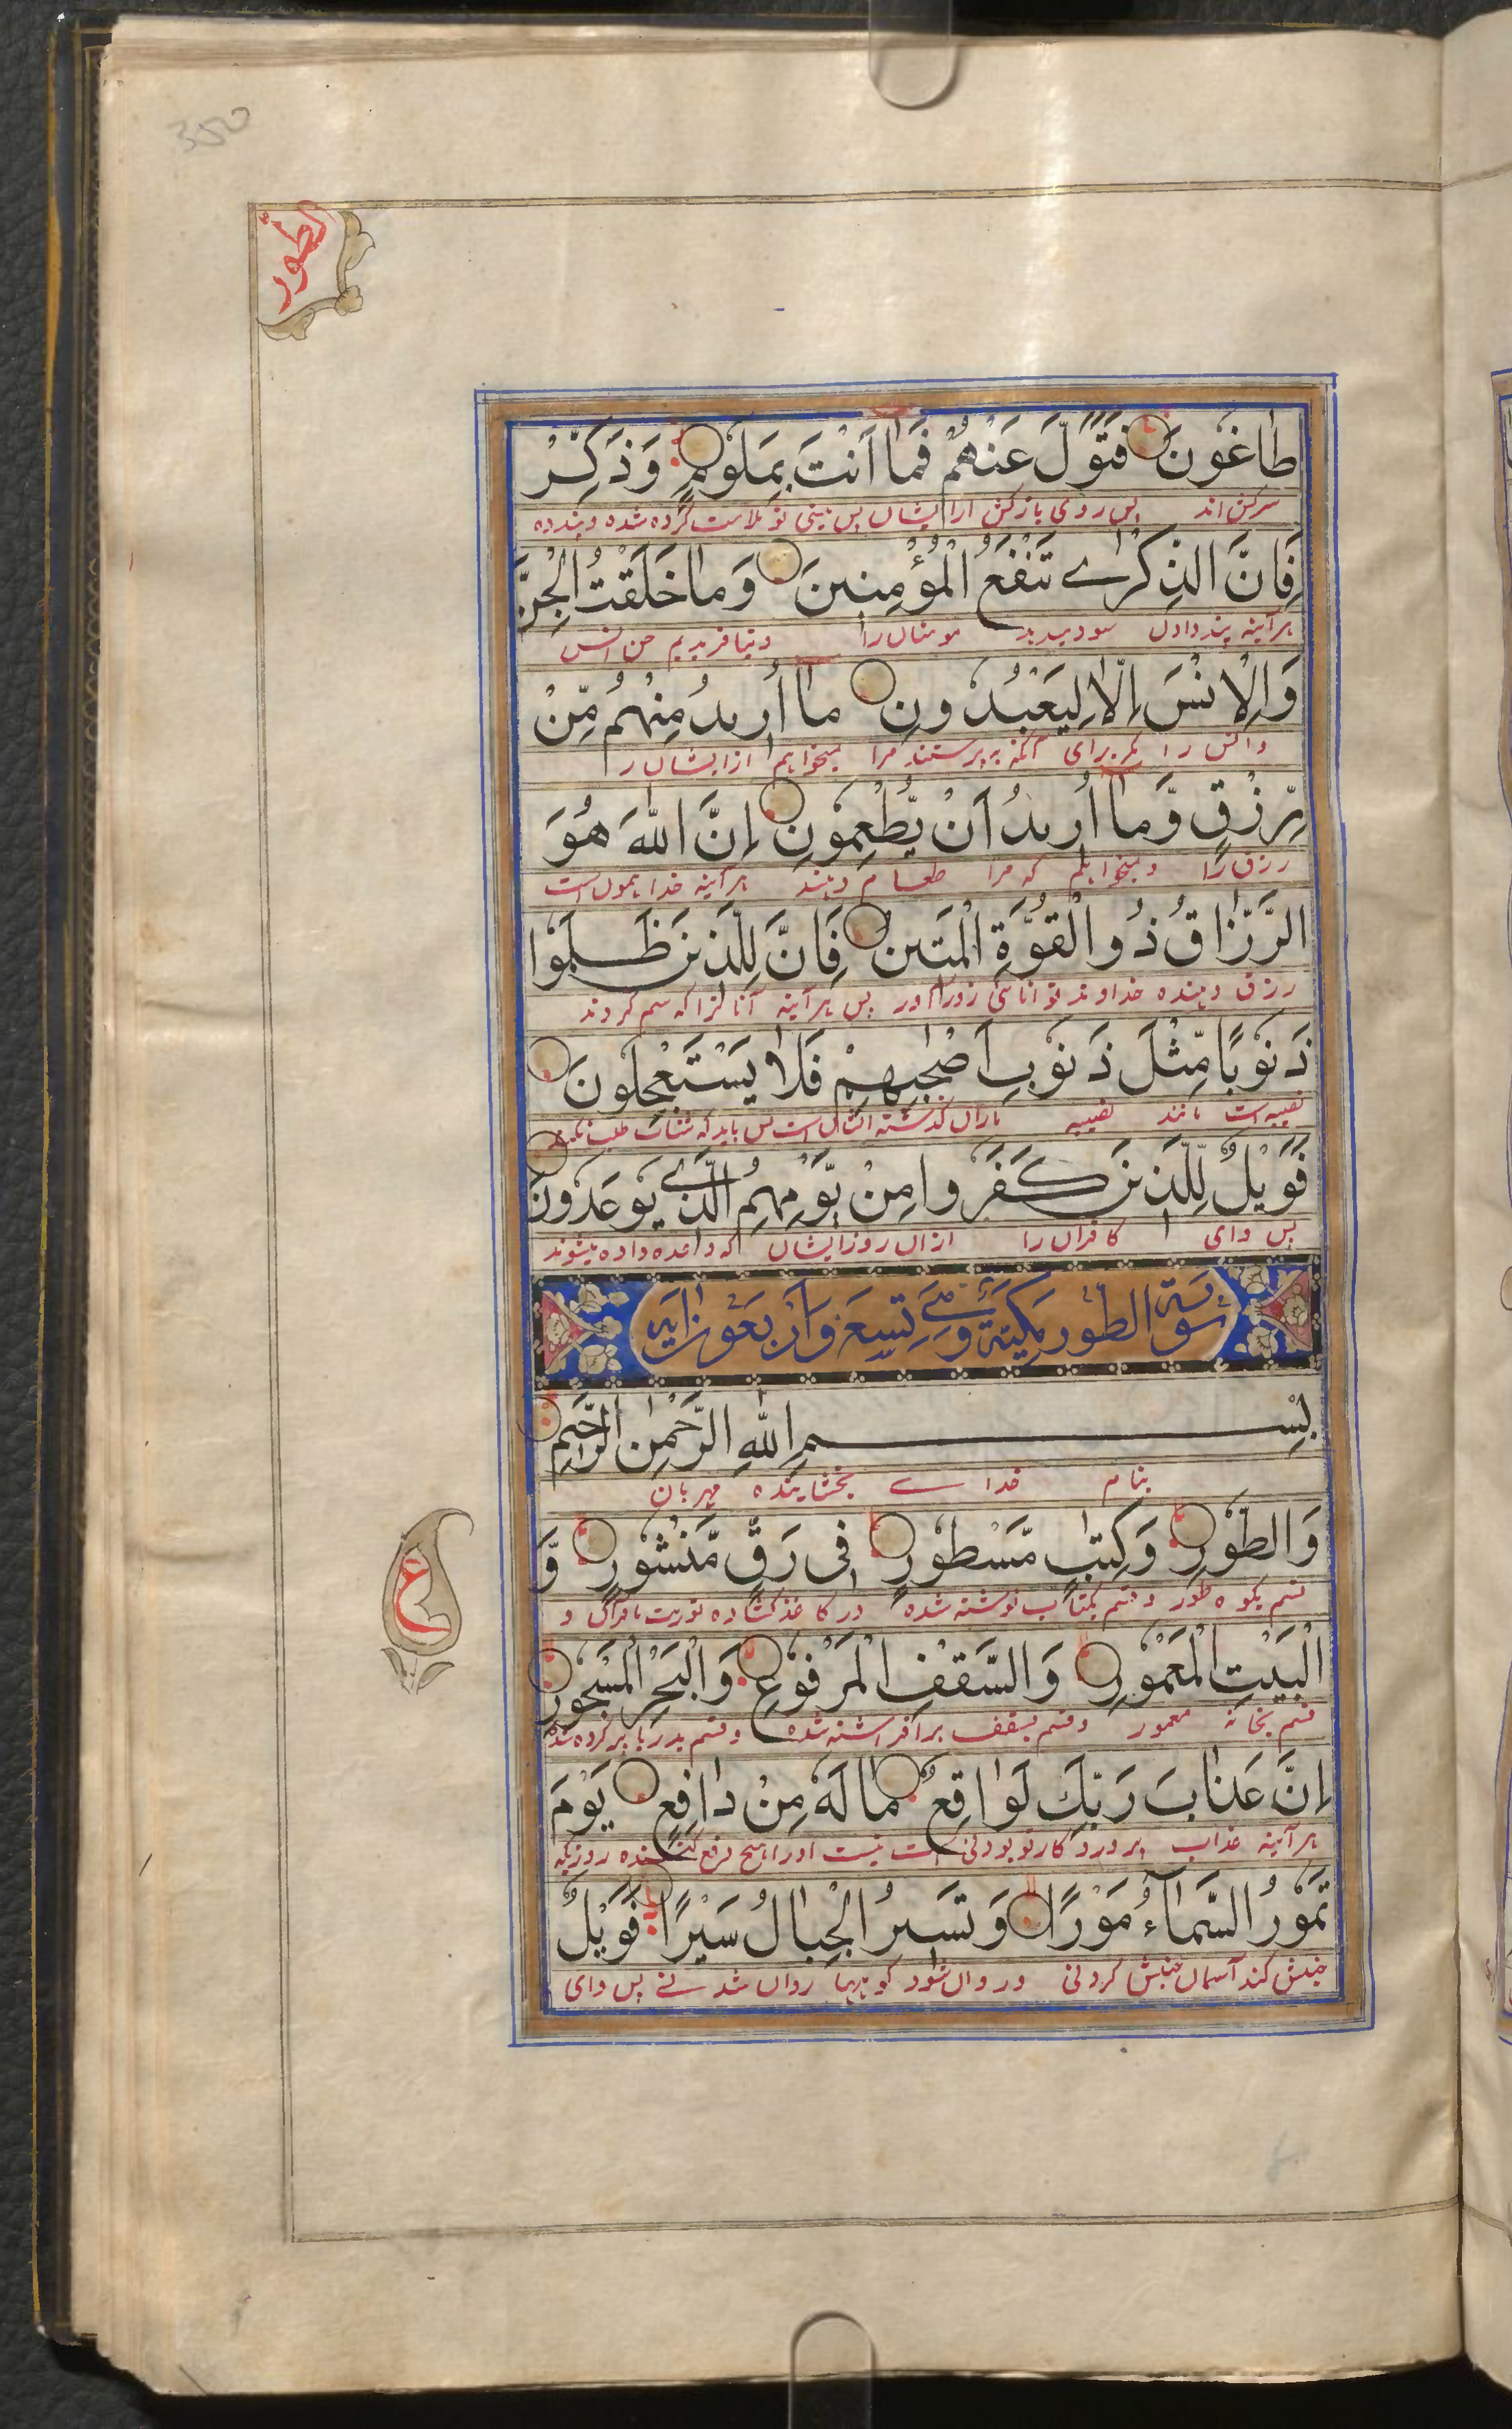 350
الطور
طَاغُونَ فَتَوَلَّ عَنْهُمْ فَمَا أَنْتَ بِمَلُومٍ وَذَكِّرْ
سرکش اند پس روی بازکش از ایشان پس نیستی تو ملامت کرده شده و پند ده
فَإِنَّ الذِّكْرٰے تَنْفَعُ الْمُؤْمِنِينَ وَمَا خَلَقْتُ الْجِنَّ
هرآینه پند دادن سود میدهد مومنان را و نیافریدیم جن انس
وَالْإِنْسَ إِلَّا لِيَعْبُدُونِ مَا أُرِيدُ مِنْهُمْ مِّنْ
و انس را مگر برای آنکه بپرستند مرا نمیخواهم از ایشان ر
رِّزْقٍ وَّمَا أُرِيدُ أَنْ يُّطْعِمُونِ إِنَّ اللّٰهَ هُوَ
رزق را و نمیخواهم که مرا طعام دهند هرآینه خدا همون است
الرَّزَّاقُ ذُو الْقُوَّةِ الْمَتِينُ فَإِنَّ لِلَّذِينَ ظَلَمُوا
رزق دهنده خداوند توانائی زورآور پس هرآینه آنانرا که ستم کردند
ذَنُوبًا مِّثْلَ ذَنُوبِ أَصْحٰبِهِمْ فَلَا يَسْتَعْجِلُونَ
نصیبه است مانند نصیبه یاران گذشته ایشان است پس باید که شتاب طلب نکنند
فَوَيْلٌ لِّلَّذِينَ كَفَرُوا مِنْ يَّوْمِهِمُ الَّذِے يُوعَدُونَ
پس وای کافران را ازان روز ایشان که وعده داده میشوند
سورة الطور مكية وهي تسع واربعون اية
بِسْمِ اللّٰهِ الرَّحْمٰنِ الرَّحِيمِ
بنام خداے بخشاینده مهربان
وَالطُّورِ وَكِتٰبٍ مَّسْطُورٍ فِي رَقٍّ مَّنْشُورٍ وَّ
قسم بکوه طور و قسم بکتاب نوشته شده در کاغذ کشاده توریت یا قرآن و
الْبَيْتِ الْمَعْمُورِ وَالسَّقْفِ الْمَرْفُوعِ وَالْبَحْرِ الْمَسْجُورِ
قسم بخانه معمور و قسم بسقف برافراشته شده و قسم بدریا پر کرده شده
ع
إِنَّ عَذَابَ رَبِّكَ لَوَاقِعٌ مَا لَهُ مِنْ دَافِعٍ يَوْمَ
هرآینه عذاب پروردگار تو بودنی است نیست او را هیچ دفع کننده روزیکه
تَمُورُ السَّمَاءُ مَوْرًا وَتَسِيرُ الْجِبَالُ سَيْرًا فَوَيْلٌ
جنبش کند آسمان جنبش کردنی و روان شود کوهها روان شدنے پس وای